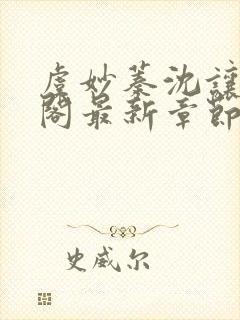 虞妙蓁沈讓
閣最新章節
史威尔